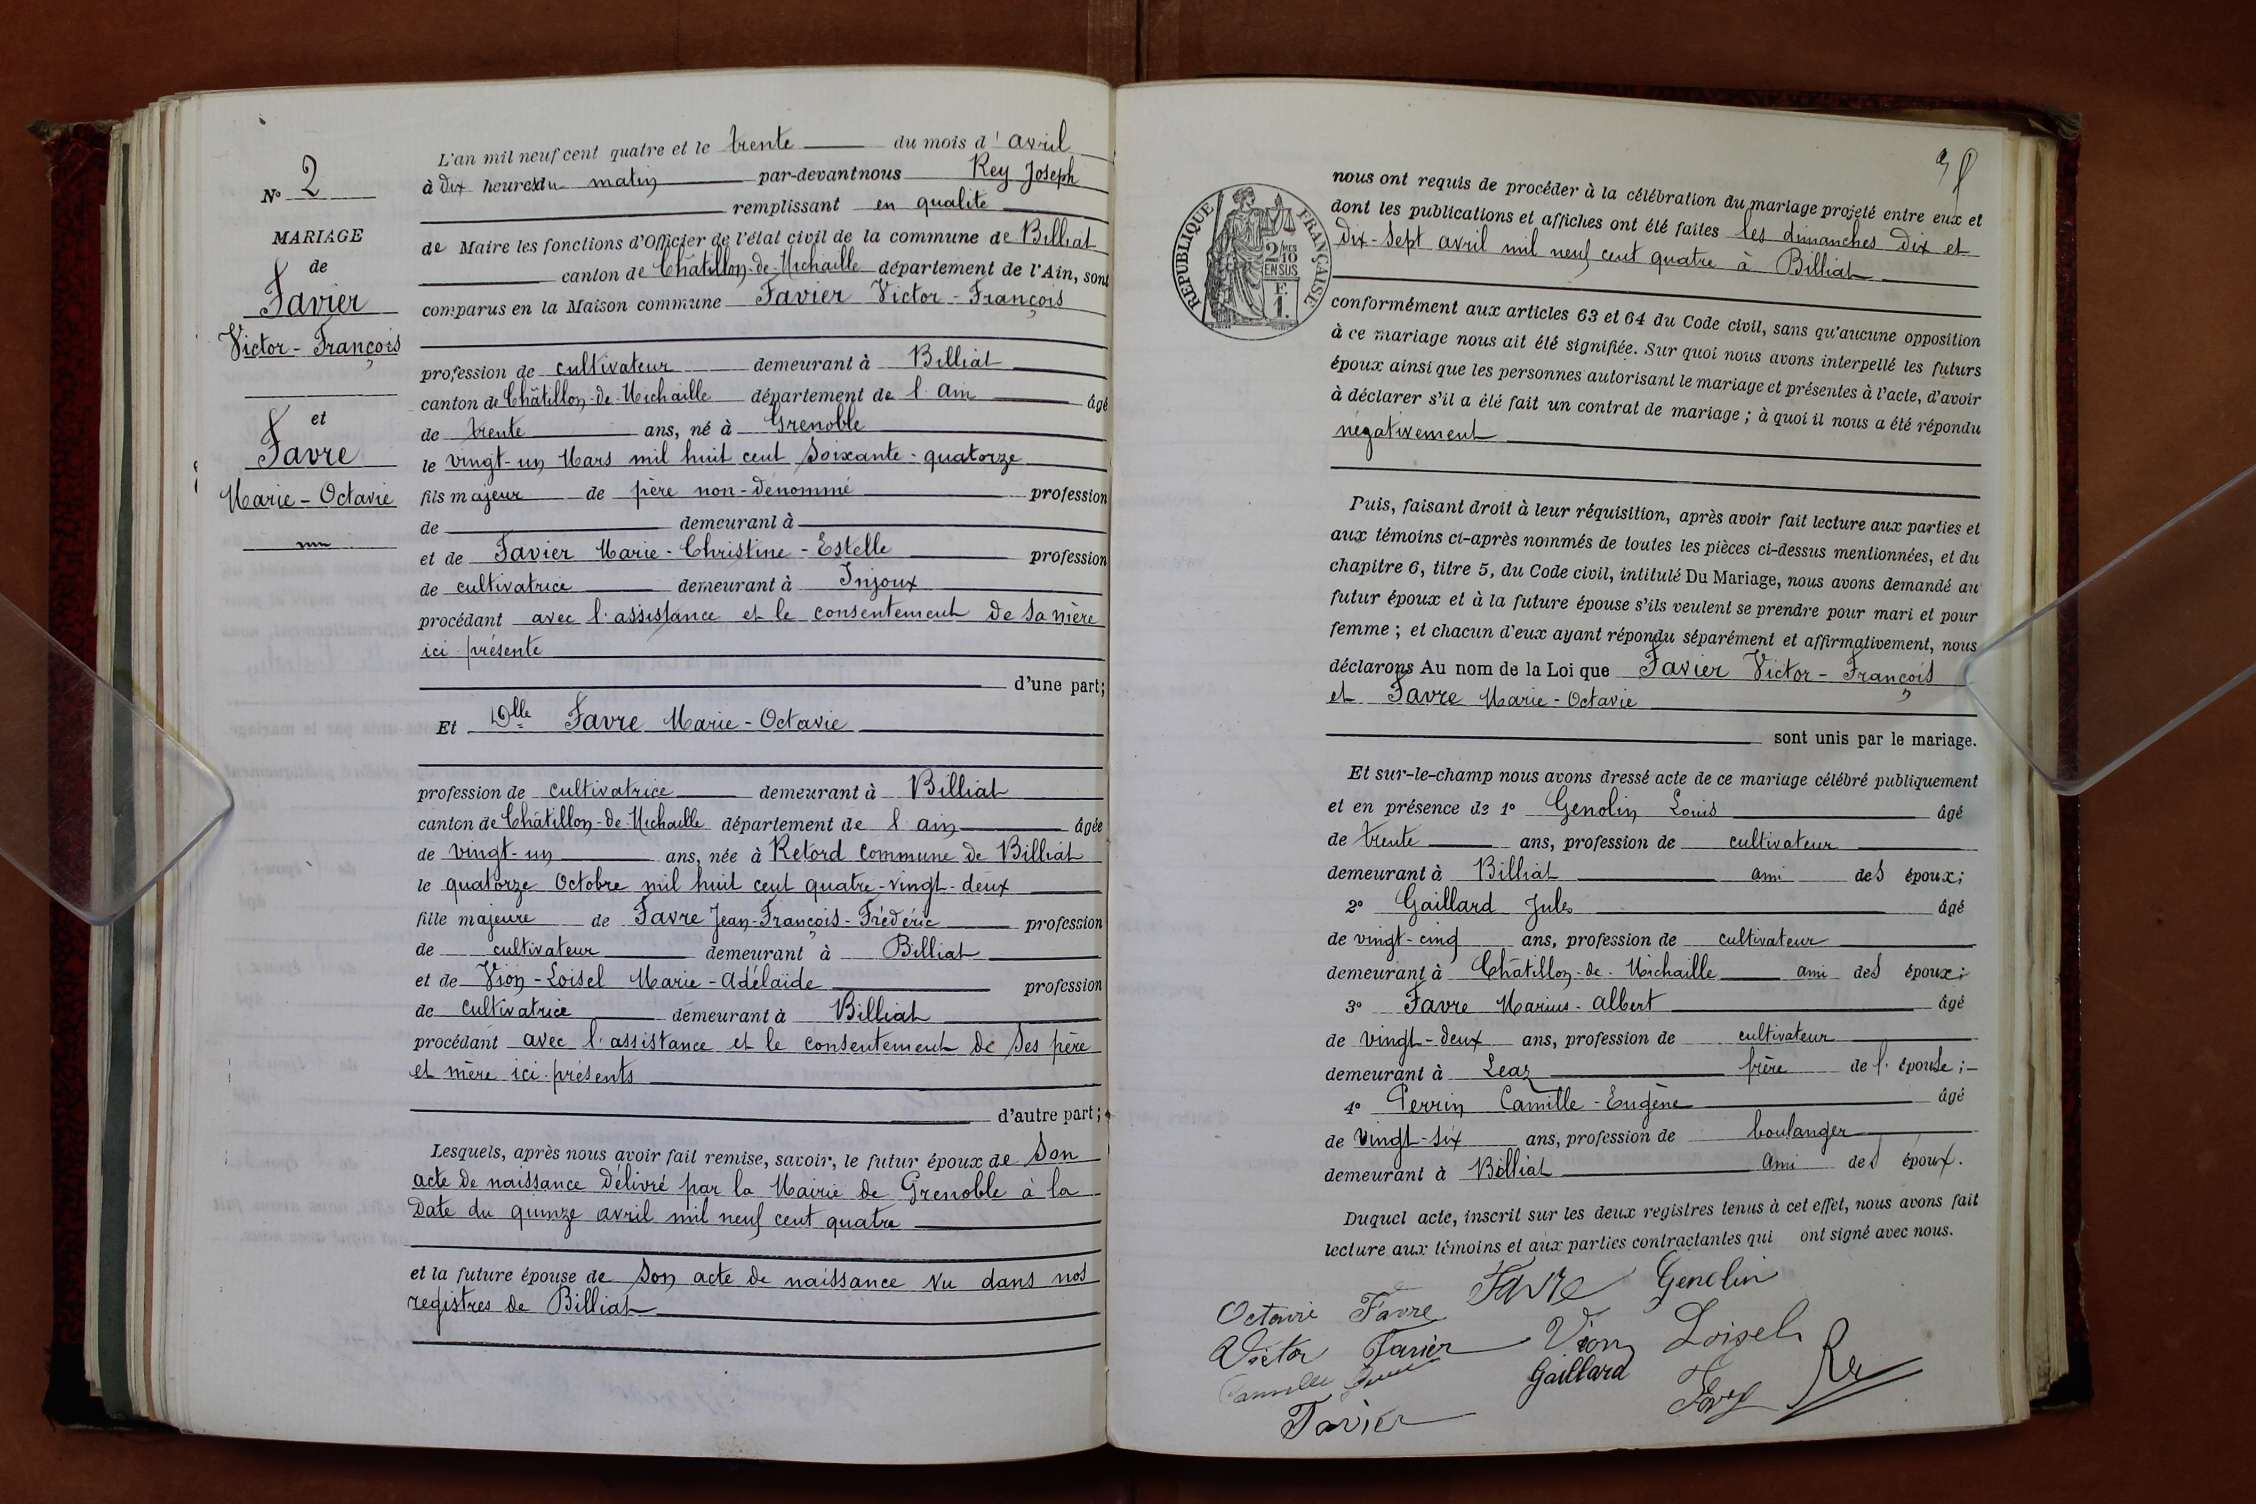 N° 2
MARIAGE
de
Favier
Victor-François
et
Favre
Marie-Octavie
L'an mil neuf cent quatre et le trente du mois d'avril
à dix heures du matin par-devant nous Rey Joseph
remplissant en qualité
de Maire les fonctions d'Officier de l'état civil de la commune de Billiat
canton de Châtillon-de-Michaille département de l'Ain, sont
comparus en la Maison commune Favier Victor-François
profession de cultivateur demeurant à Billiat
canton de Châtillon-de-Michaille département de l'Ain âgé
de trente ans, né à Grenoble
le vingt-un Mars mil huit cent soixante-quatorze
fils majeur de père non-dénommé profession
de demeurant à
et de Favier Marie-Christine-Estelle profession
de cultivatrice demeurant à Injoux
procédant avec l'assistance et le consentement de sa mère
ici présente
d'une part;
Et Dlle Favre Marie-Octavie
profession de cultivatrice demeurant à Billiat
canton de Châtillon-de-Michaille département de l'ain âgée
de vingt-un ans, née à Retord commune de Billiat
le quatorze Octobre mil huit cent quatre-vingt-deux
fille majeure de Favre Jean-François-Frédéric profession
de cultivateur demeurant à Billiat
et de Vion-Loisel Marie-Adélaïde profession
de cultivatrice demeurant à Billiat
procédant avec l'assistance et le consentement de ses père
et mère ici présents
d'autre part;
Lesquels, après nous avoir fait remise, savoir, le futur époux de son
acte de naissance délivré par la Mairie de Grenoble à la
date du quinze avril mil neuf cent quatre
et la future épouse de son acte de naissance vu dans nos
registres de Billiat
RÉPUBLIQUE FRANÇAISE
2/10
EN SUS
F.
1.
nous ont requis de procéder à la célébration du mariage projeté entre eux et
dont les publications et affiches ont été faites les dimanches dix et
dix-sept avril mil neuf cent quatre à Billiat
conformément aux articles 63 et 64 du Code civil, sans qu'aucune opposition
à ce mariage nous ait été signifiée. Sur quoi nous avons interpellé les futurs
époux ainsi que les personnes autorisant le mariage et présentes à l'acte, d'avoir
à déclarer s'il a été fait un contrat de mariage; à quoi il nous a été répondu
négativement
Puis, faisant droit à leur réquisition, après avoir fait lecture aux parties et
aux témoins ci-après nommés de toutes les pièces ci-dessus mentionnées, et du
chapitre 6, titre 5, du Code civil, intitulé Du Mariage, nous avons demandé au
futur époux et à la future épouse s'ils veulent se prendre pour mari et pour
femme; et chacun d'eux ayant répondu séparément et affirmativement, nous
déclarons Au nom de la Loi que Favier Victor-François
et Favre Marie-Octavie
sont unis par le mariage.
Et sur-le-champ nous avons dressé acte de ce mariage célébré publiquement
et en présence de 1° Genolin Louis âgé
de trente ans, profession de cultivateur
demeurant à Billiat ami des époux;
2° Gaillard Jules âgé
de vingt-cinq ans, profession de cultivateur
demeurant à Châtillon-de-Michaille ami des époux;
3° Favre Marius-Albert âgé
de vingt-deux ans, profession de cultivateur
demeurant à Léaz frère de l'épouse;
4° Perrin Camille-Eugène âgé
de vingt-six ans, profession de boulanger
demeurant à Billiat ami des époux.
Duquel acte, inscrit sur les deux registres tenus à cet effet, nous avons fait
lecture aux témoins et aux parties contractantes qui ont signé avec nous.
Octavie Favre Favre Genolin
Victor Favier Vion Loisel
Camille Gaillard Rey
Favier